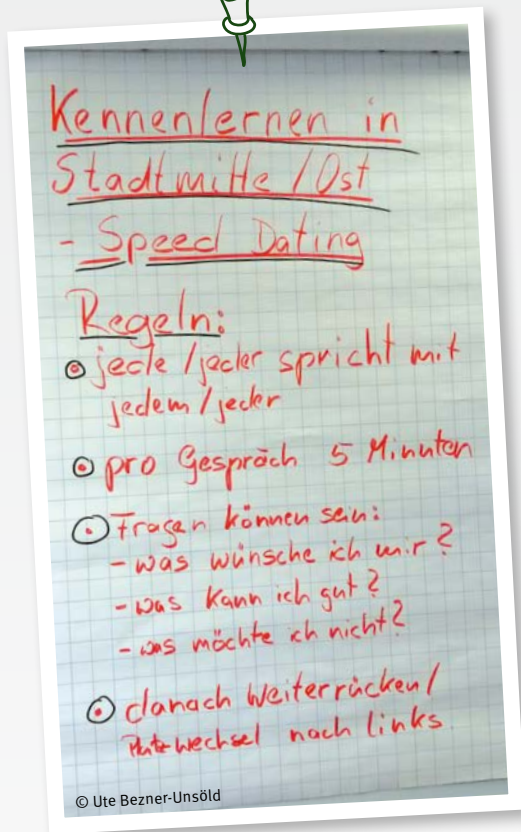 Kennenlernen in
Stadtmitte / Ost
- Speed Dating
Regeln:
jede / jeder spricht mit
jedem / jeder
pro Gespräch 5 Minuten
Fragen können sein:
- was wünsche ich mir?
- was kann ich gut?
- was möchte ich nicht?
danach Weiterrücken /
Platzwechsel nach links
© Ute Bezner-Unsöld